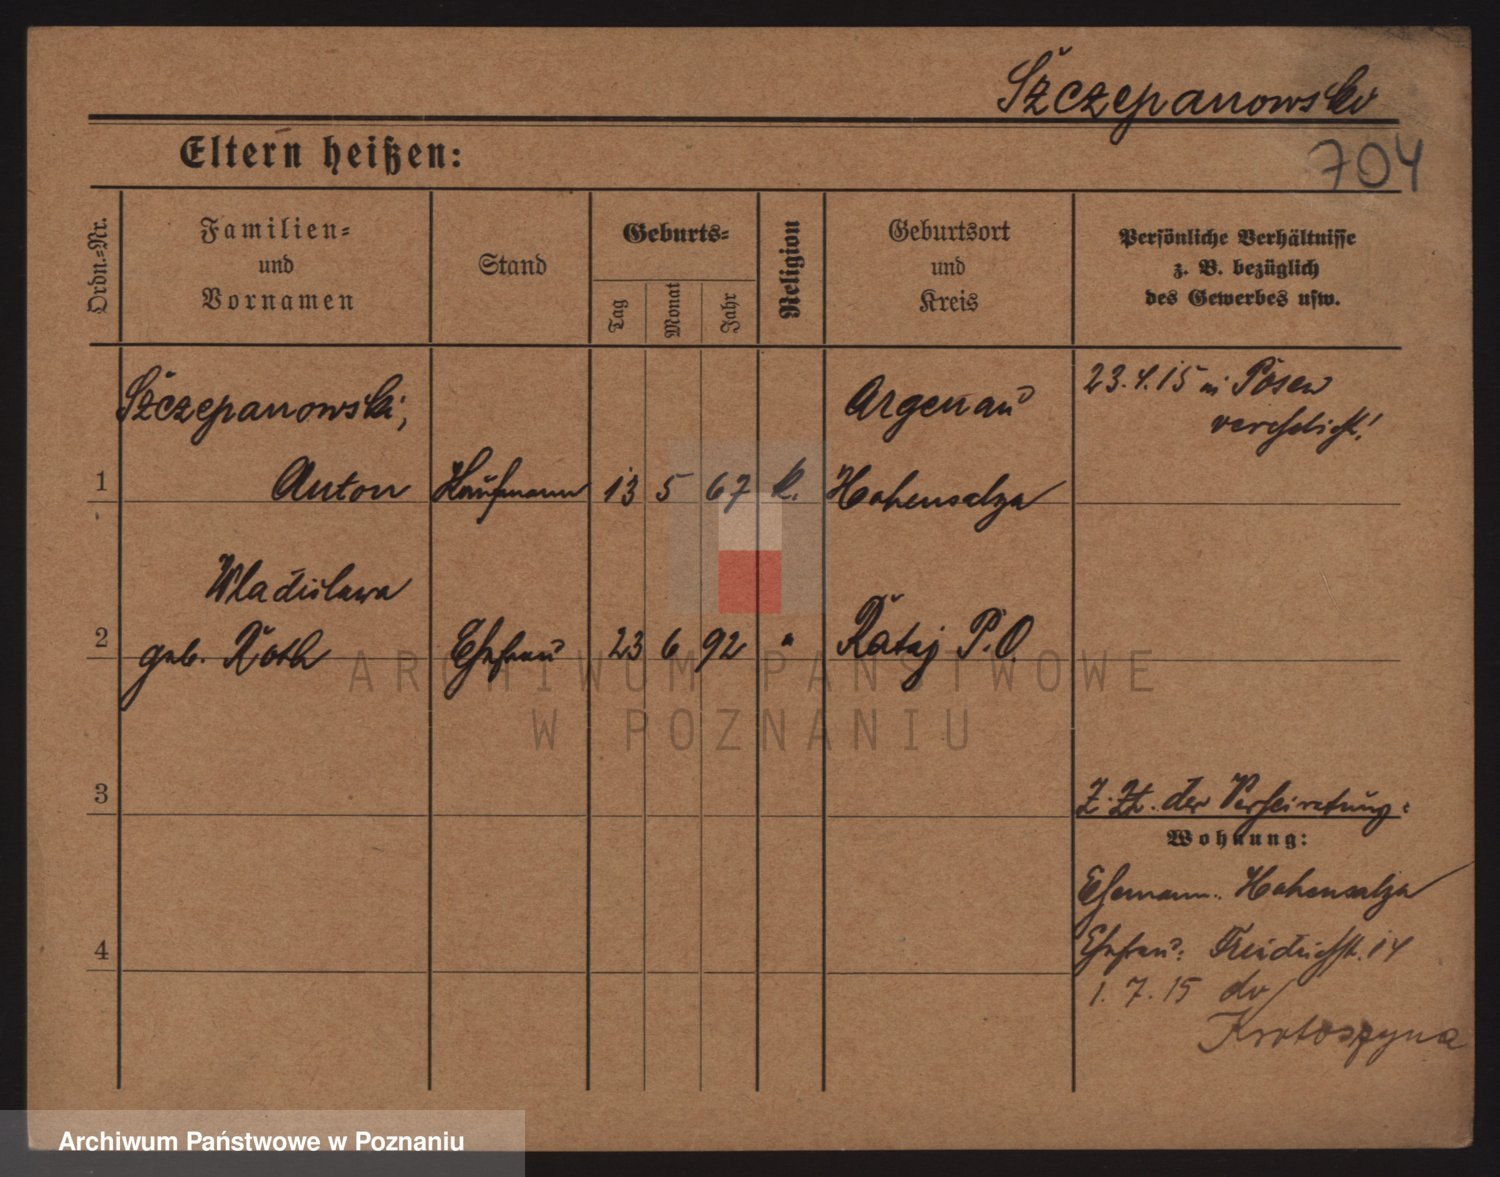 Szczepanowski
704
Eltern heißen:
Ordn.-Nr.
Familien-
und
Vornamen
Stand
Geburts-
Tag
Monat
Jahr
Religion
Geburtsort
und
Kreis
Persönliche Verhältnisse
z. B. bezüglich
des Gewerbes usw.
Szczepanowski,
Argenau
23.4.15 in Posen
verehelicht!
1 Anton Kaufmann 13 5 67 k. Hohensalza
Wladislawa
2 geb. Roth Ehefrau 23 6 92 " Rataj P.O.
ARCHIWUM PAŃSTWOWE
W POZNANIU
3
Z. Zt. der Verheiratung:
Wohnung:
Ehemann: Hohensalza
4
Ehefrau: Friedrichstr. 14
1.7.15
Krotoszyna
Archiwum Państwowe w Poznaniu